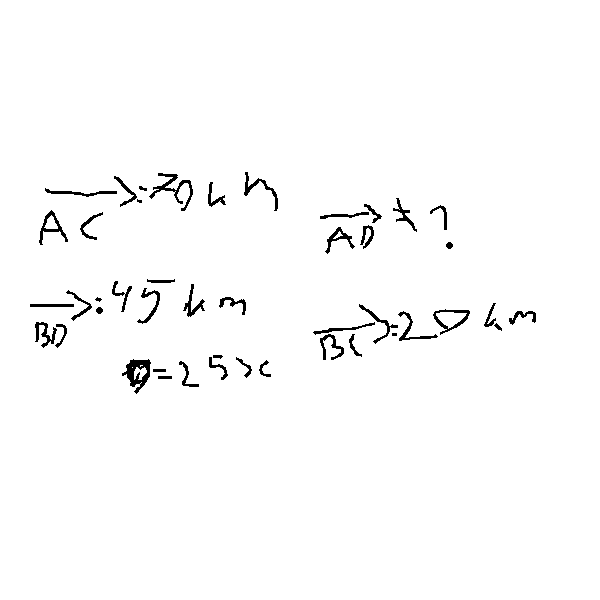 AC → : 70 km
AD → ≠ ?
BD → : 45 km
BC → : 20 km
= 25